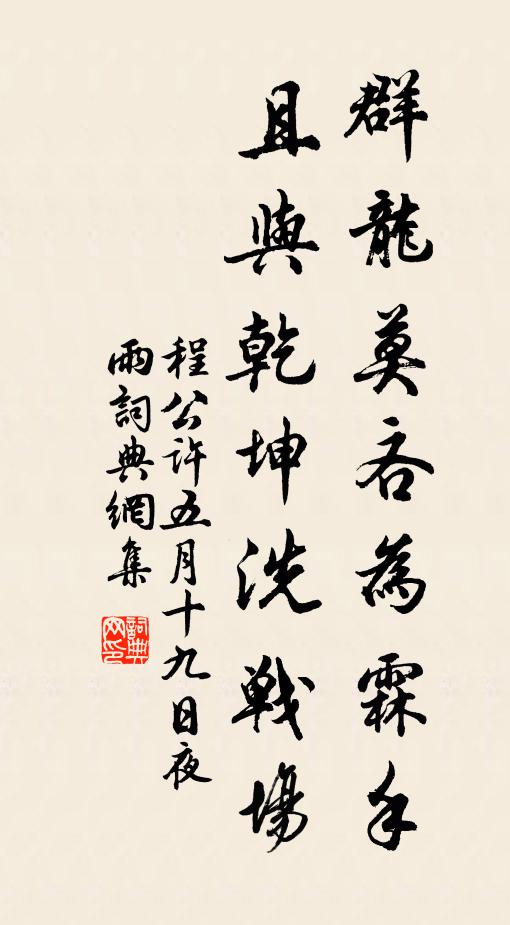 群龍莫吝為霖手
且與乾坤洗戰場
程公許五月十九日夜
雨詞典網集
詞典网印